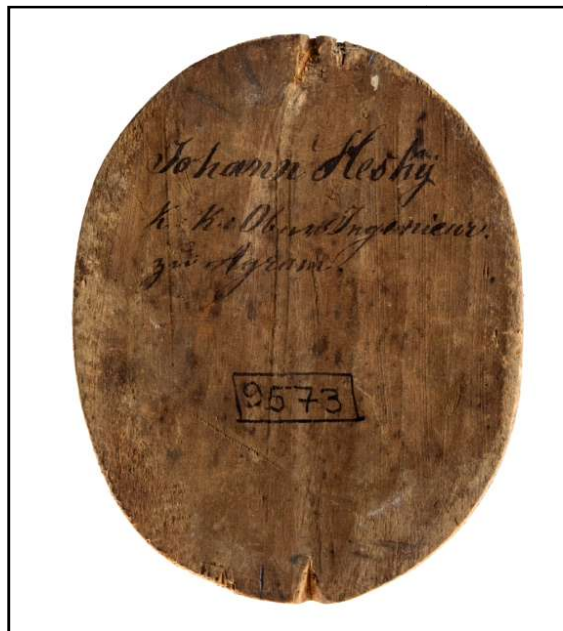 Johann Heshÿ
K: K: Ober Ingenieur.
zu Agram.
9573